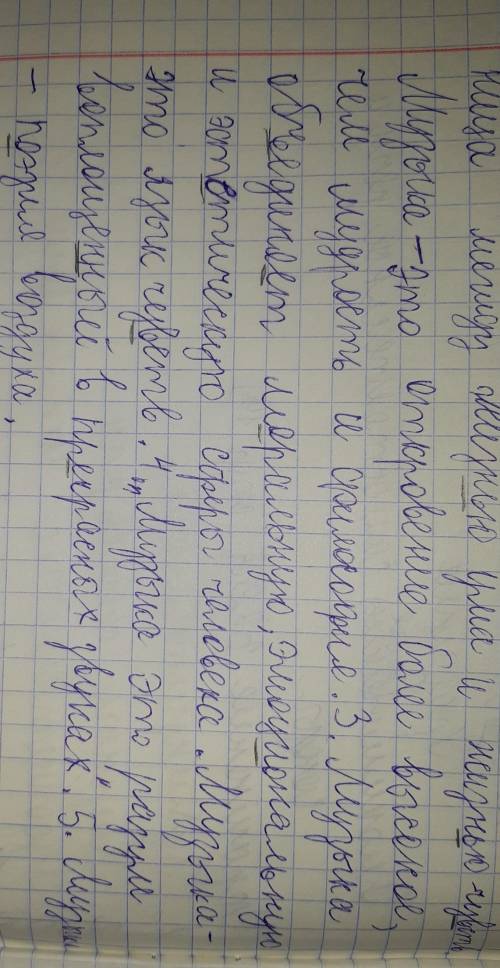 ница между жизнью ума и жизнью чувств
Музыка - это откровение более высокое,
чем мудрость и философия. 3. Музыка
объединяет моральную, эмоциональную
и эстетическую сферы человека. Музыка -
это язык чувств. 4 „Музыка это разум
воплощенный в прекрасных звуках". 5. Музыка
- поэзия воздуха,